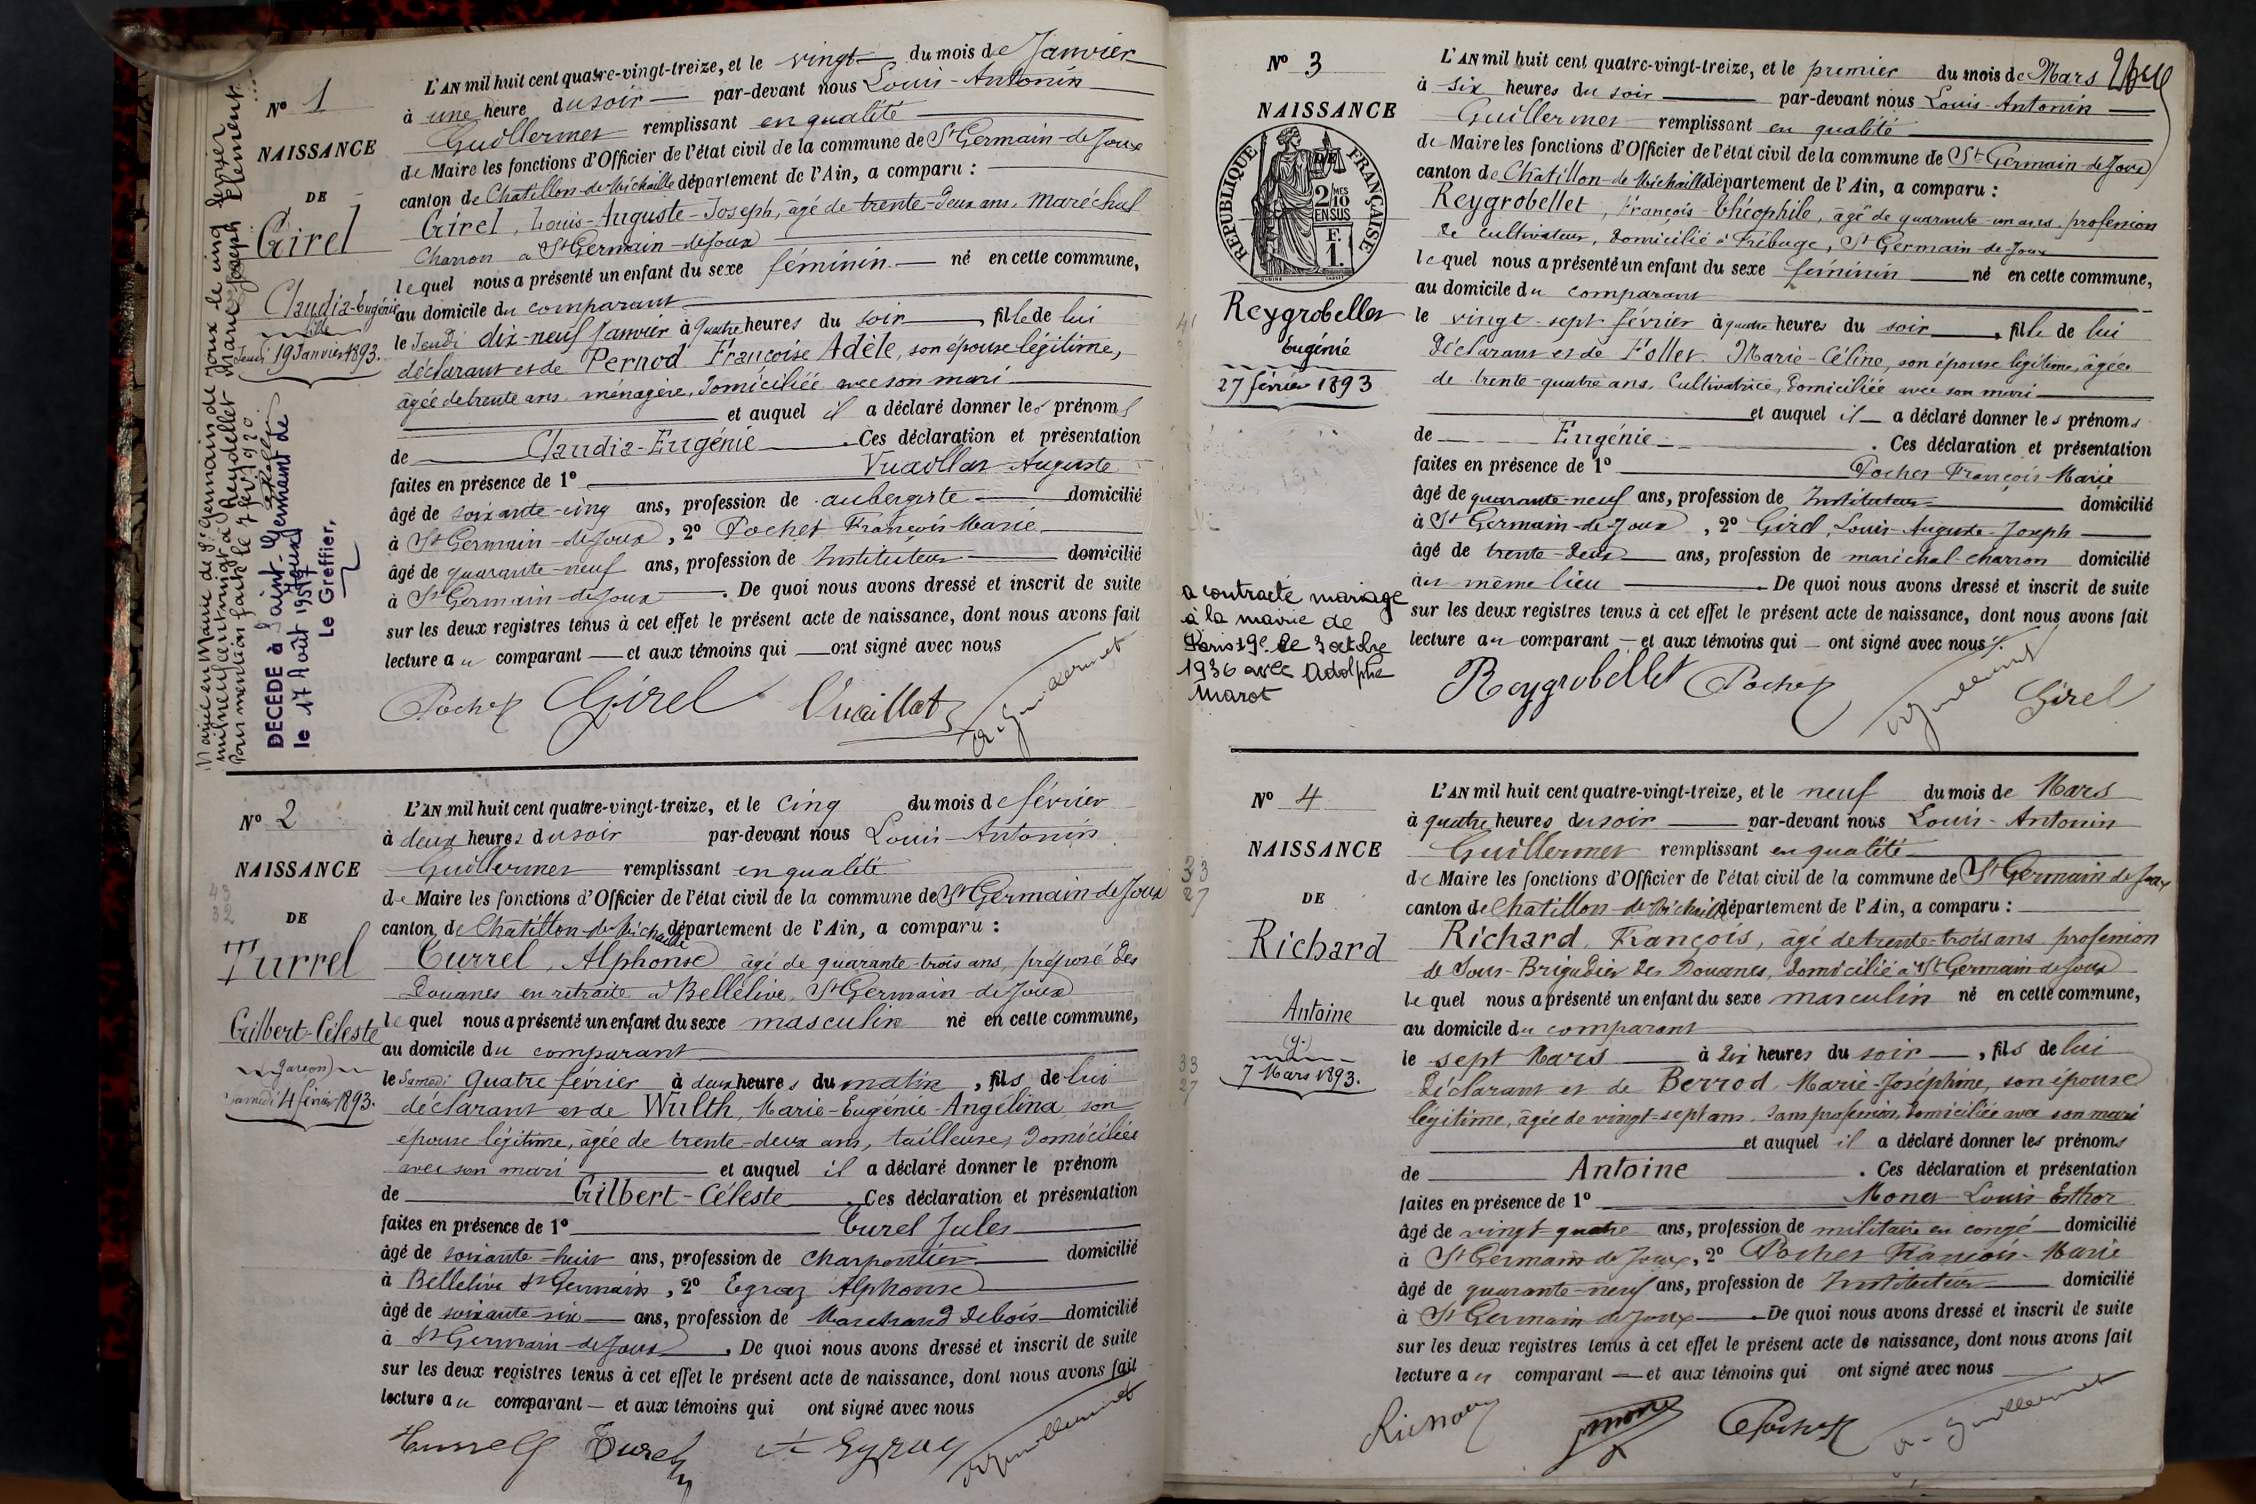 N° 1
NAISSANCE
DE
Girel
Claudia-Eugénie
fille
Jeudi 19 Janvier 1893.
Mariée en Mairie de St Germain de Joux le cinq février
mil neuf cent vingt à Reydellet Marie Joseph Clément
Pour mention faite le 7 fév. 1920
DÉCÉDÉ à Saint-Germain de Joux
le 17 Août 1957
Le Greffier,
L'AN mil huit cent quatre-vingt-treize, et le vingt du mois de Janvier
à une heure du soir par-devant nous Louis-Antonin
Guillermet remplissant en qualité
de Maire les fonctions d'Officier de l'état civil de la commune de St Germain-de-Joux
canton de Chatillon-de-Michaille département de l'Ain, a comparu :
Girel, Louis-Auguste-Joseph, âgé de trente-deux ans, Maréchal
Charron à St Germain-de-Joux
lequel nous a présenté un enfant du sexe féminin né en cette commune,
au domicile du comparant
le Jeudi dix-neuf Janvier à quatre heures du soir, fille de lui
déclarant et de Pernod Françoise Adèle, son épouse légitime,
âgée de trente ans ménagère, domiciliée avec son mari
et auquel il a déclaré donner les prénoms
de Claudia-Eugénie. Ces déclaration et présentation
faites en présence de 1° Vuaillat Auguste
âgé de soixante-cinq ans, profession de aubergiste domicilié
à St Germain-de-Joux, 2° Pochet François-Marie
âgé de quarante-neuf ans, profession de Instituteur domicilié
à St Germain-de-Joux. De quoi nous avons dressé et inscrit de suite
sur les deux registres tenus à cet effet le présent acte de naissance, dont nous avons fait
lecture au comparant et aux témoins qui ont signé avec nous
Pochet Girel Vuaillat A. Guillermet
N° 2
NAISSANCE
43
32
DE
Turrel
Gilbert-Céleste
garçon
Samedi 4 février 1893.
L'AN mil huit cent quatre-vingt-treize, et le cinq du mois de février
à deux heures du soir par-devant nous Louis-Antonin
Guillermet remplissant en qualité
de Maire les fonctions d'Officier de l'état civil de la commune de St Germain-de-Joux
canton de Chatillon-de-Michaille département de l'Ain, a comparu :
Turrel, Alphonse âgé de quarante-trois ans, préposé des
Douanes en retraite à Bellelive, St Germain-de-Joux
lequel nous a présenté un enfant du sexe masculin né en cette commune,
au domicile du comparant
le Samedi quatre février à deux heures du matin, fils de lui
déclarant et de Wulth, Marie-Eugénie-Angélina son
épouse légitime, âgée de trente-deux ans, tailleuse, domiciliée
avec son mari et auquel il a déclaré donner le prénom
de Gilbert-Céleste. Ces déclaration et présentation
faites en présence de 1° Turel Jules
âgé de soixante-huit ans, profession de charpentier domicilié
à Bellelive St Germain, 2° Egraz Alphonse
âgé de soixante six ans, profession de Marchand de bois domicilié
à St Germain-de-Joux. De quoi nous avons dressé et inscrit de suite
sur les deux registres tenus à cet effet le présent acte de naissance, dont nous avons fait
lecture au comparant et aux témoins qui ont signé avec nous
Turrel Turel A. Egraz A. Guillermet
N° 3
NAISSANCE
DE
RÉPUBLIQUE FRANÇAISE
2/10 MES
EN SUS
F.
1.
Reygrobellet
Eugénie
27 février 1893
a contracté mariage
à la mairie de
Paris 19e le 3 octobre
1936 avec Adolphe
Marot
L'AN mil huit cent quatre-vingt-treize, et le premier du mois de Mars
à six heures du soir par-devant nous Louis-Antonin
Guillermet remplissant en qualité
de Maire les fonctions d'Officier de l'état civil de la commune de St Germain-de-Joux
canton de Chatillon-de-Michaille département de l'Ain, a comparu :
Reygrobellet, François-Théophile, âgé de quarante-un ans, profession
de cultivateur, domicilié à Trébuge, St Germain-de-Joux
lequel nous a présenté un enfant du sexe féminin né en cette commune,
au domicile du comparant
le vingt-sept février à quatre heures du soir, fille de lui
déclarant et de Follet Marie-Céline, son épouse légitime, âgée
de trente-quatre ans, Cultivatrice, domiciliée avec son mari
et auquel il a déclaré donner les prénoms
de Eugénie. Ces déclaration et présentation
faites en présence de 1° Pochet François-Marie
âgé de quarante-neuf ans, profession de Instituteur domicilié
à St Germain-de-Joux, 2° Girel, Louis-Auguste-Joseph
âgé de trente-deux ans, profession de maréchal-charron domicilié
au même lieu. De quoi nous avons dressé et inscrit de suite
sur les deux registres tenus à cet effet le présent acte de naissance, dont nous avons fait
lecture au comparant et aux témoins qui ont signé avec nous
Reygrobellet Pochet A. Guillermet Girel
N° 4
NAISSANCE
DE
33
27
Richard
Antoine
(g.)
7 Mars 1893.
33
27
L'AN mil huit cent quatre-vingt-treize, et le neuf du mois de Mars
à quatre heures du soir par-devant nous Louis-Antonin
Guillermet remplissant en qualité
de Maire les fonctions d'Officier de l'état civil de la commune de St Germain de Joux
canton de Chatillon-de-Michaille département de l'Ain, a comparu :
Richard, François, âgé de trente-trois ans profession
de Sous-Brigadier des Douanes, domicilié à St Germain-de-Joux
lequel nous a présenté un enfant du sexe masculin né en cette commune,
au domicile du comparant
le sept Mars à dix heures du soir, fils de lui
déclarant et de Berrod Marie-Joséphine, son épouse
légitime, âgée de vingt-sept ans, sans profession, domiciliée avec son mari
et auquel il a déclaré donner les prénoms
de Antoine. Ces déclaration et présentation
faites en présence de 1° Monet Louis Esthor
âgé de vingt-quatre ans, profession de militaire en congé domicilié
à St Germain de Joux, 2° Pochet François-Marie
âgé de quarante-neuf ans, profession de Instituteur domicilié
à St Germain de Joux. De quoi nous avons dressé et inscrit de suite
sur les deux registres tenus à cet effet le présent acte de naissance, dont nous avons fait
lecture au comparant et aux témoins qui ont signé avec nous
Richard Monet Pochet A. Guillermet